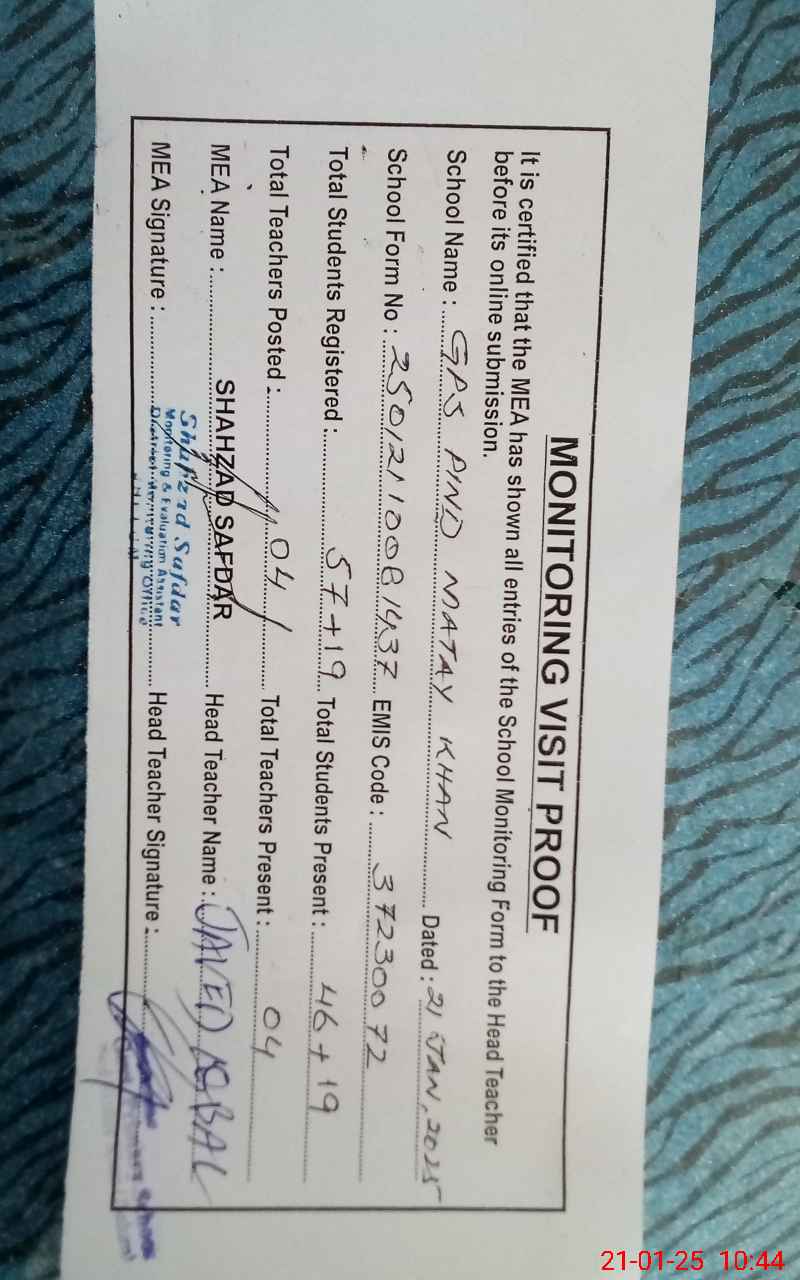 MONITORING VISIT PROOF
It is certified that the MEA has shown all entries of the School Monitoring Form to the Head Teacher
before its online submission.
School Name : GPS PIND MATAY KHAN Dated : 21 JAN, 2025
School Form No : EMIS Code : 37230072
Total Students Registered : 57+19 Total Students Present : 46+19
Total Teachers Posted : 04 Total Teachers Present : 04
MEA Name : SHAHZAD SAFDAR Head Teacher Name : JAVED IQBAL
MEA Signature : Head Teacher Signature :
Shahzad Safdar
Monitoring & Evaluation Assistant
District Monitoring Office
21-01-25 10:44